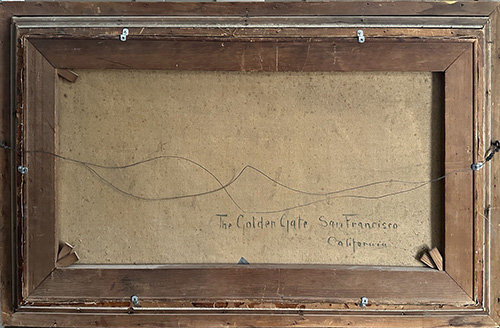 The Golden Gate San Francisco
California